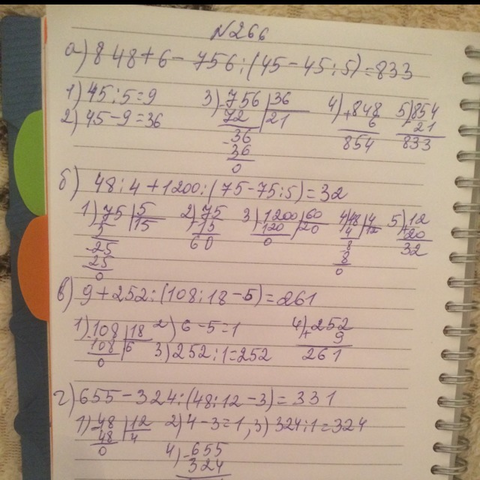 №266
а) 848+6-756:(45-45:5)=833
1) 45:5=9 3) 756 | 36 4) +848 5) 854
2) 45-9=36 72 | 21 6 - 21
-36 854 833
36
0
б) 48:4+1200:(75-75:5)=32
1) 75 | 5 2) 75 3) 1200 | 60 4) 48 | 4 5) 12
5 | 15 15 120 | 20 4 | 12 20
25 60 0 8 32
25 8
0 0
в) 9+252:(108:18-5)=261
1) 108 | 18 2) 6-5=1 4) +252
108 | 6 3) 252:1=252 9
0 261
г) 655-324:(48:12-3)=331
1) 48 | 12 2) 4-3=1, 3) 324:1=324
48 | 4
0 4) -655
324